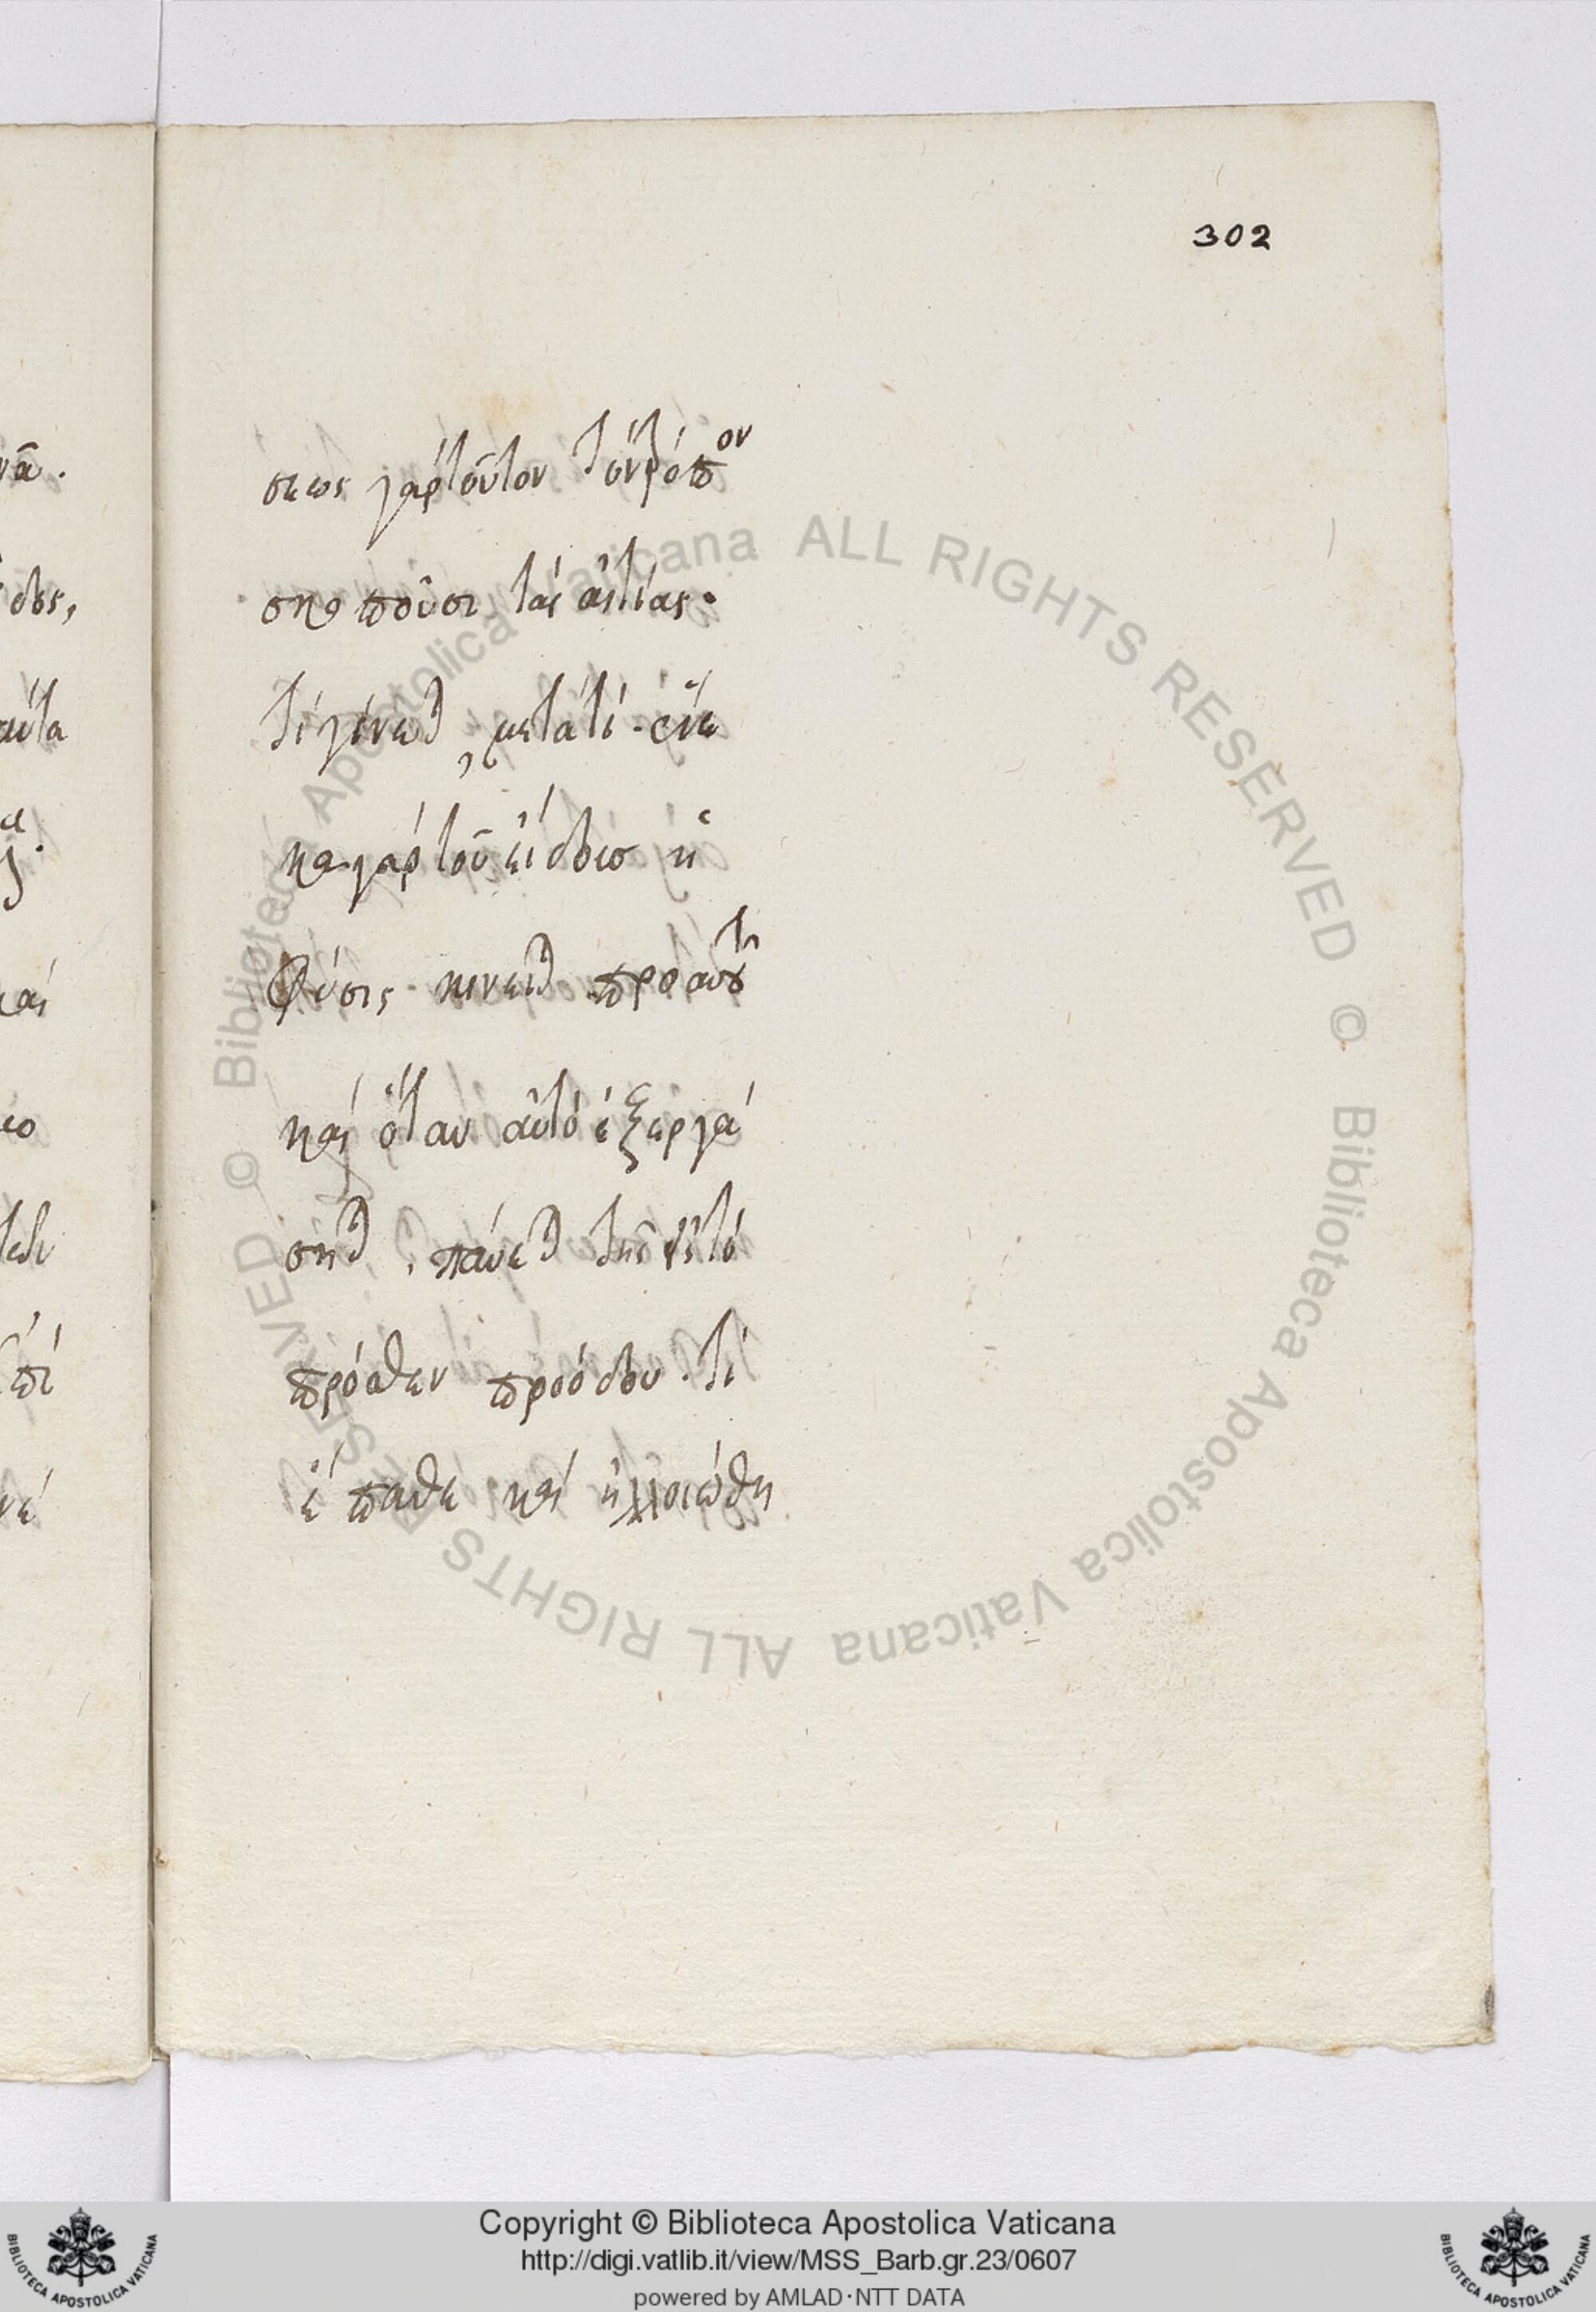 302
σεως γὰρ τοῦτον τὸν τρόπον
σκοποῦσι τὰς αἰτίας.
τί γίνεται, μετὰ τί. ἕνε
κα γὰρ τοῦ εἴδους ἡ
φύσις κινεῖται πρὸς αὐτὸ
καὶ ὅταν αὐτὸ ἐξεργά
σηται, παύεται τῆς ἐπὶ τὸ
πρόσθεν προόδου. τί
ἔπαθε καὶ ἠλλοιώθη
νᾶ.
καὶ
πί
νέ
© Biblioteca Apostolica Vaticana ALL RIGHTS RESERVED © Biblioteca Apostolica Vaticana ALL RIGHTS RESERVED
Copyright © Biblioteca Apostolica Vaticana
http://digi.vatlib.it/view/MSS_Barb.gr.23/0607
powered by AMLAD·NTT DATA
BIBLIOTECA APOSTOLICA VATICANA
BIBLIOTECA APOSTOLICA VATICANA